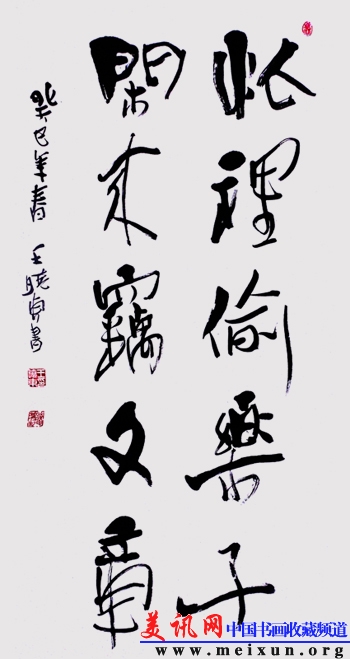 忙裡偷樂子
閑来竊文章
癸巳年春 王曉書
美讯网 中国书画收藏频道
www.meixun.org